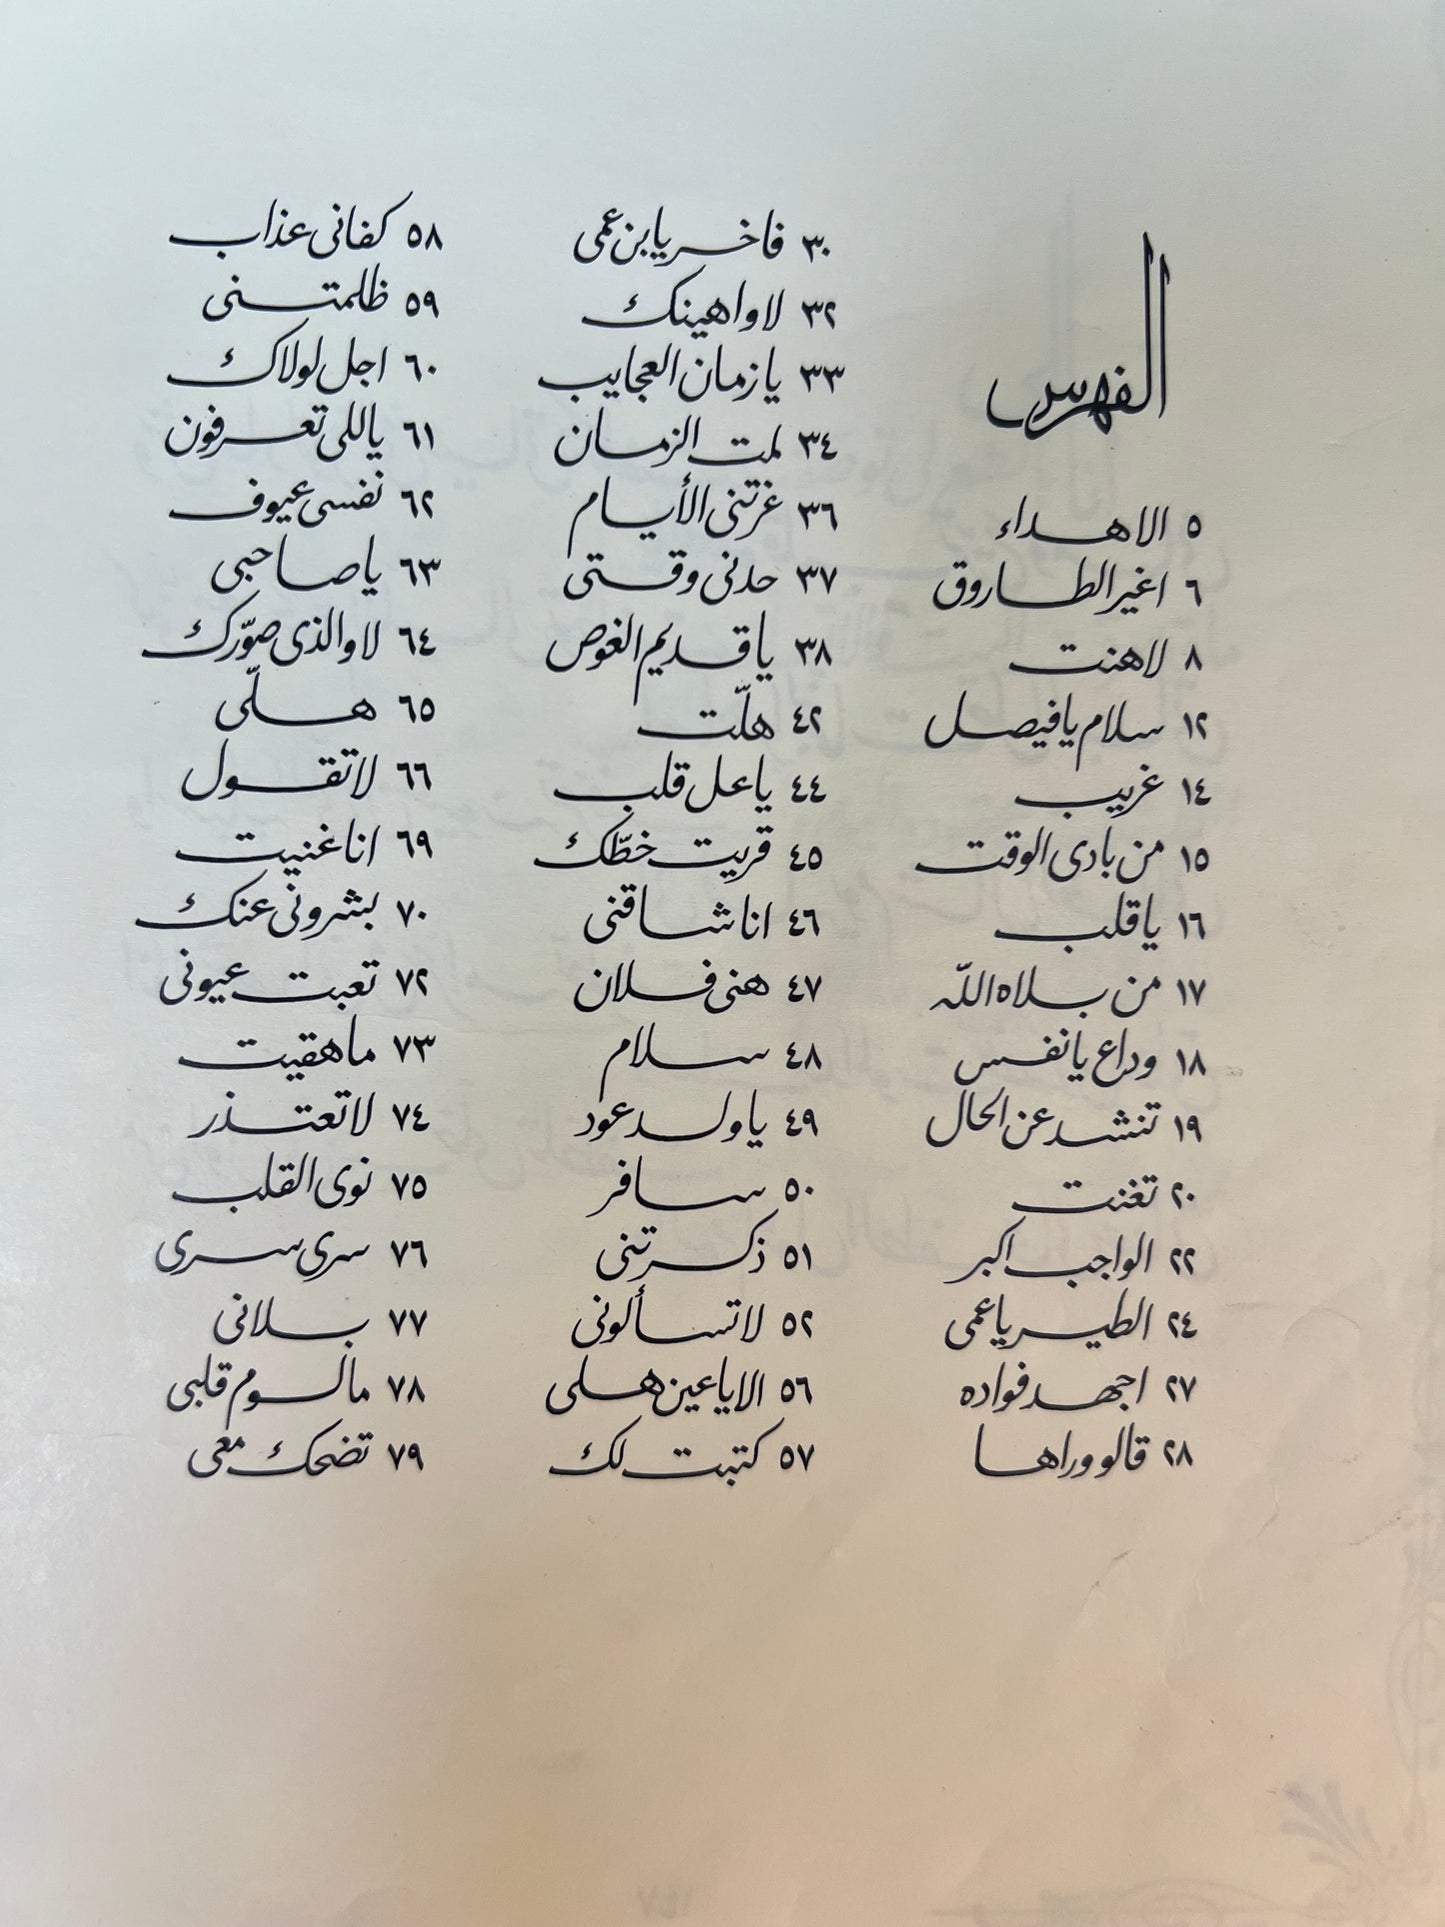 الفهرس
٥ الاهداء
٦ اغير الطاروق
٨ لاهنت
١٢ سلام يا فيصل
١٤ غريب
١٥ من بادى الوقت
١٦ يا قلب
١٧ من بلاه الله
١٨ وداع يا نفس
١٩ تنشد عن الحال
٢٠ تغنت
٢٢ الواجب اكبر
٢٤ الطير يا عمى
٢٧ اجهد فواده
٢٨ قالو وراها
٣٠ فاخر يا بن عمى
٣٢ لا واهينك
٣٣ يا زمان العجايب
٣٤ لمت الزمان
٣٦ غرتنى الأيام
٣٧ حدنى وقتى
٣٨ يا قديم الغوص
٤٢ هلّت
٤٤ يا عل قلب
٤٥ قريت خطّك
٤٦ انا شاقنى
٤٧ هنى فلان
٤٨ سلام
٤٩ يا ولد عود
٥٠ سافر
٥١ ذكرتنى
٥٢ لا تسألونى
٥٦ الا يا عين هلى
٥٧ كتبت لك
٥٨ كفانى عذاب
٥٩ ظلمتنى
٦٠ اجل لولاك
٦١ ياللى تعرفون
٦٢ نفسى عيوف
٦٣ يا صاحبى
٦٤ لا والذى صوّرك
٦٥ هلّى
٦٦ لا تقول
٦٩ انا غنيت
٧٠ بشرونى عنك
٧٢ تعبت عيونى
٧٣ ما هقيت
٧٤ لا تعتذر
٧٥ نوى القلب
٧٦ سرى سرى
٧٧ بلانى
٧٨ مالوم قلبى
٧٩ تضحك معى